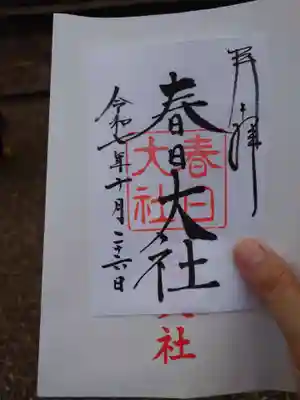 奉拝
春日大社
春日
大社
令和七年十月二十六日
大社